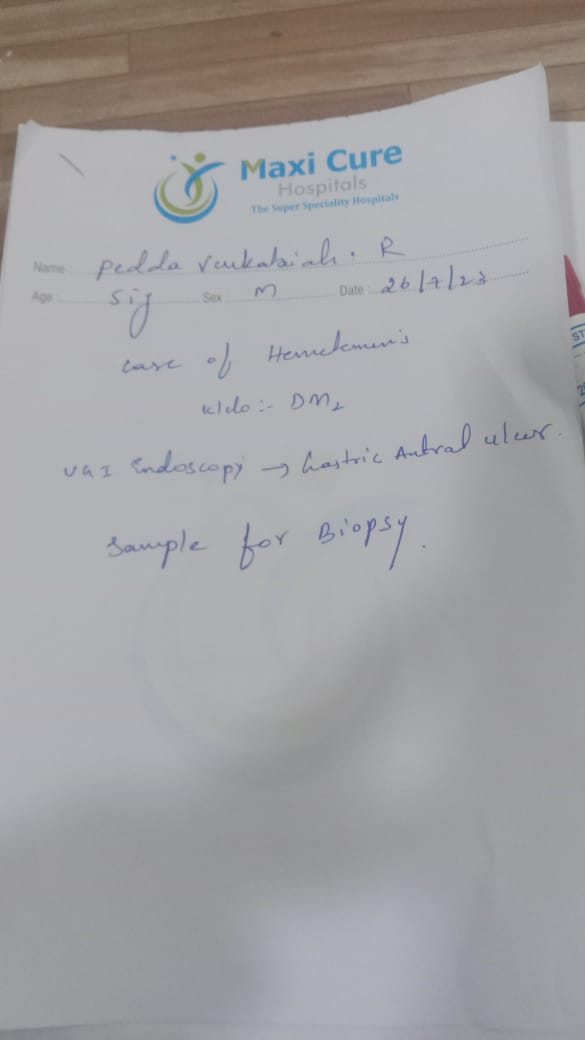 Maxi Cure
Hospitals
The Super Speciality Hospitals
Name : Pedda Venkataiah. R
Age : Sex M Date : 26/7/23
case of
k/c/o :- DM2
UGI Endoscopy → Gastric Antral ulcer.
Sample for Biopsy.
ST